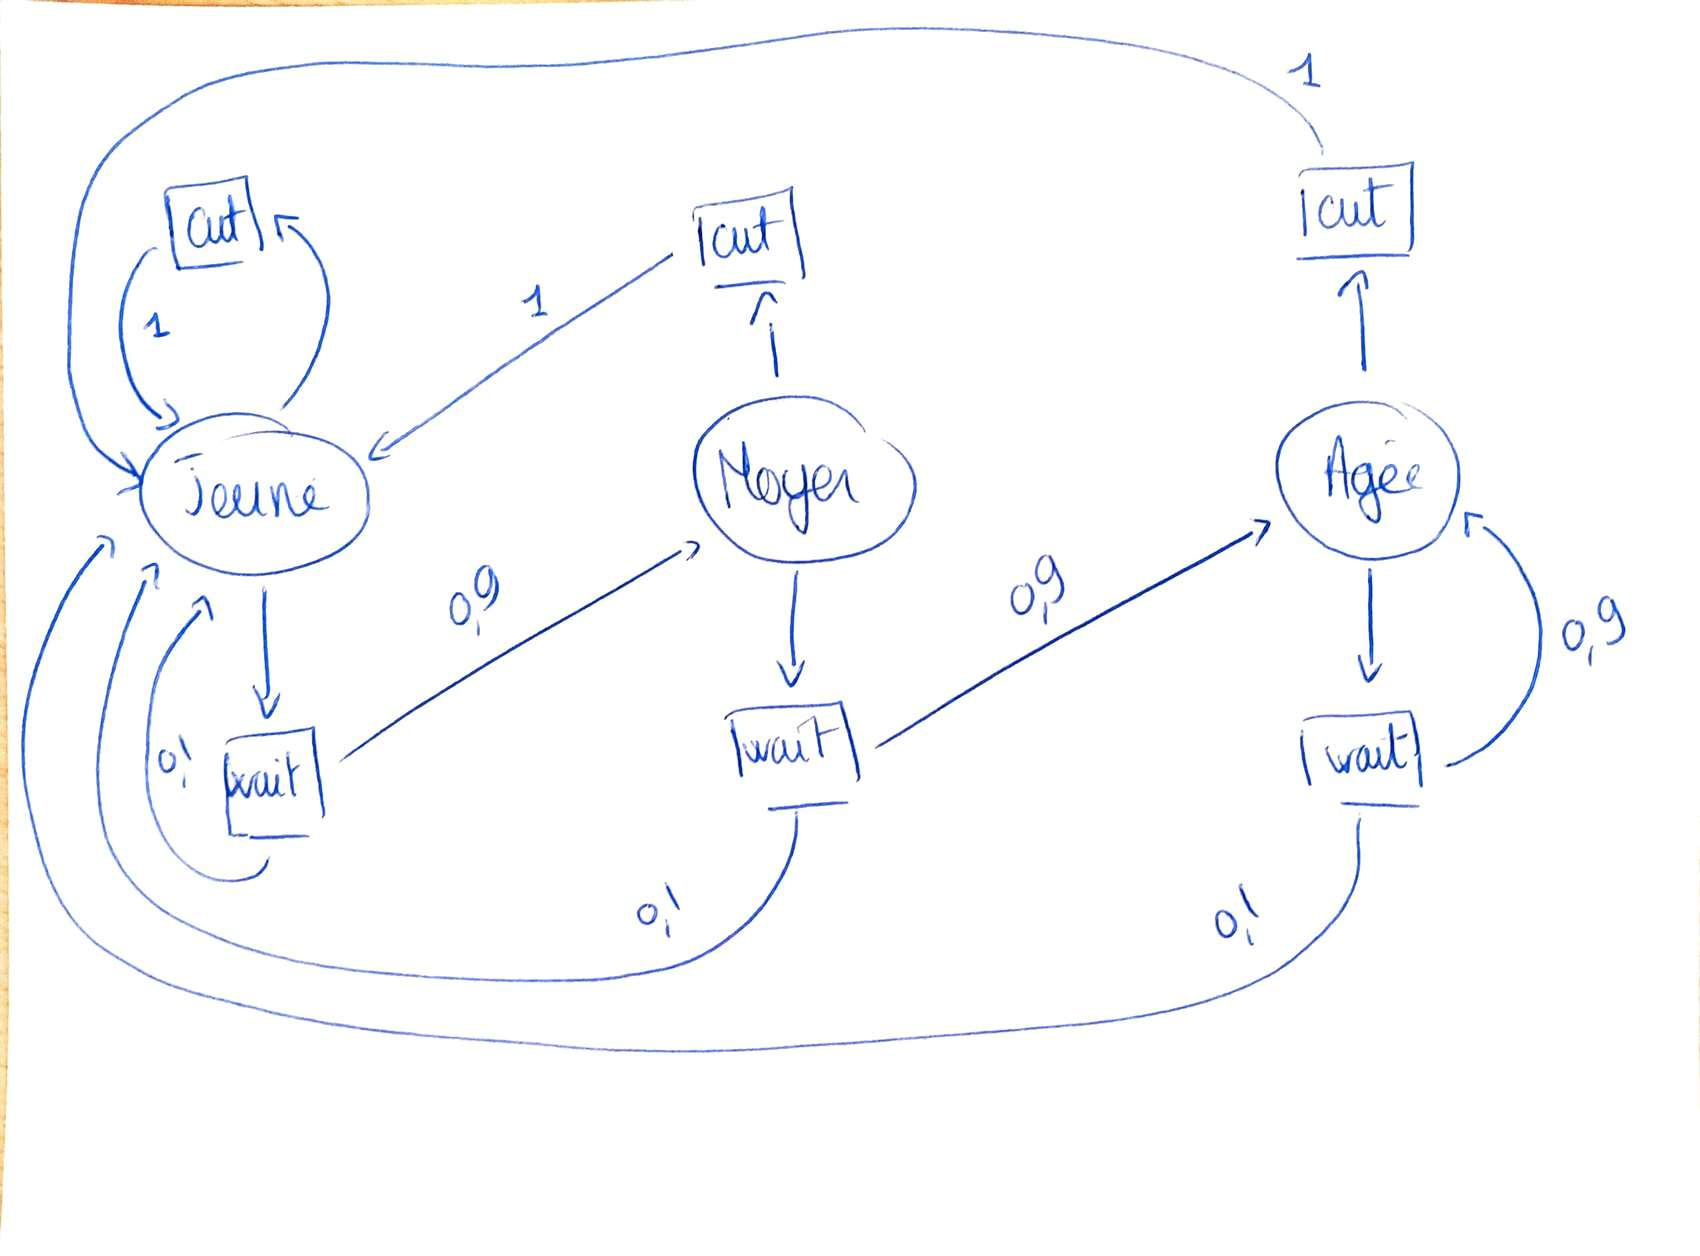 1
cut
cut
cut
1
1
Jeune
Moyen
Agée
0,9
0,9
0,9
wait
wait
wait
0,1
0,1
0,1